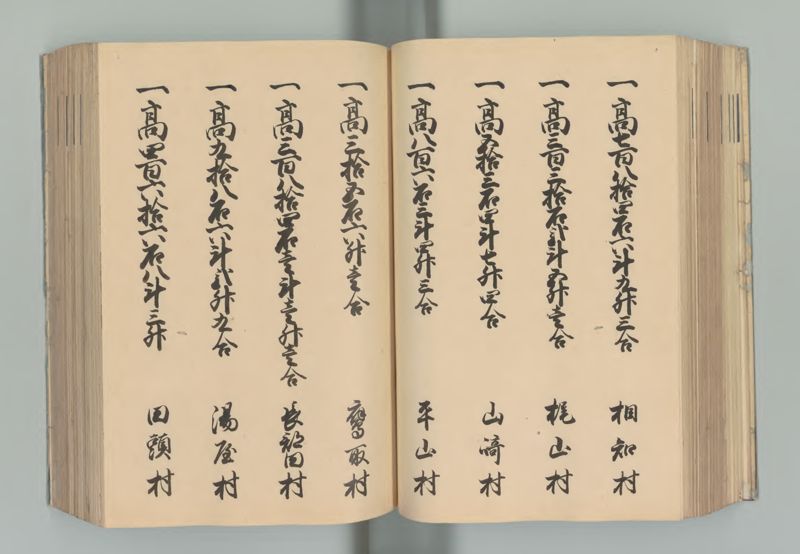 一高七百八拾四石六斗九升三合 相知村
一高三百三拾石弐斗五升壱合 梶山村
一高五拾三石四斗七升四合 山崎村
一高八百六石三斗四升三合 平山村
一高三拾五石六升壱合 鷹取村
一高三百八拾四石壱斗壱升壱合 長部田村
一高九拾八石六斗弐升九合 湯屋村
一高四百六拾六石八斗三升 田頭村